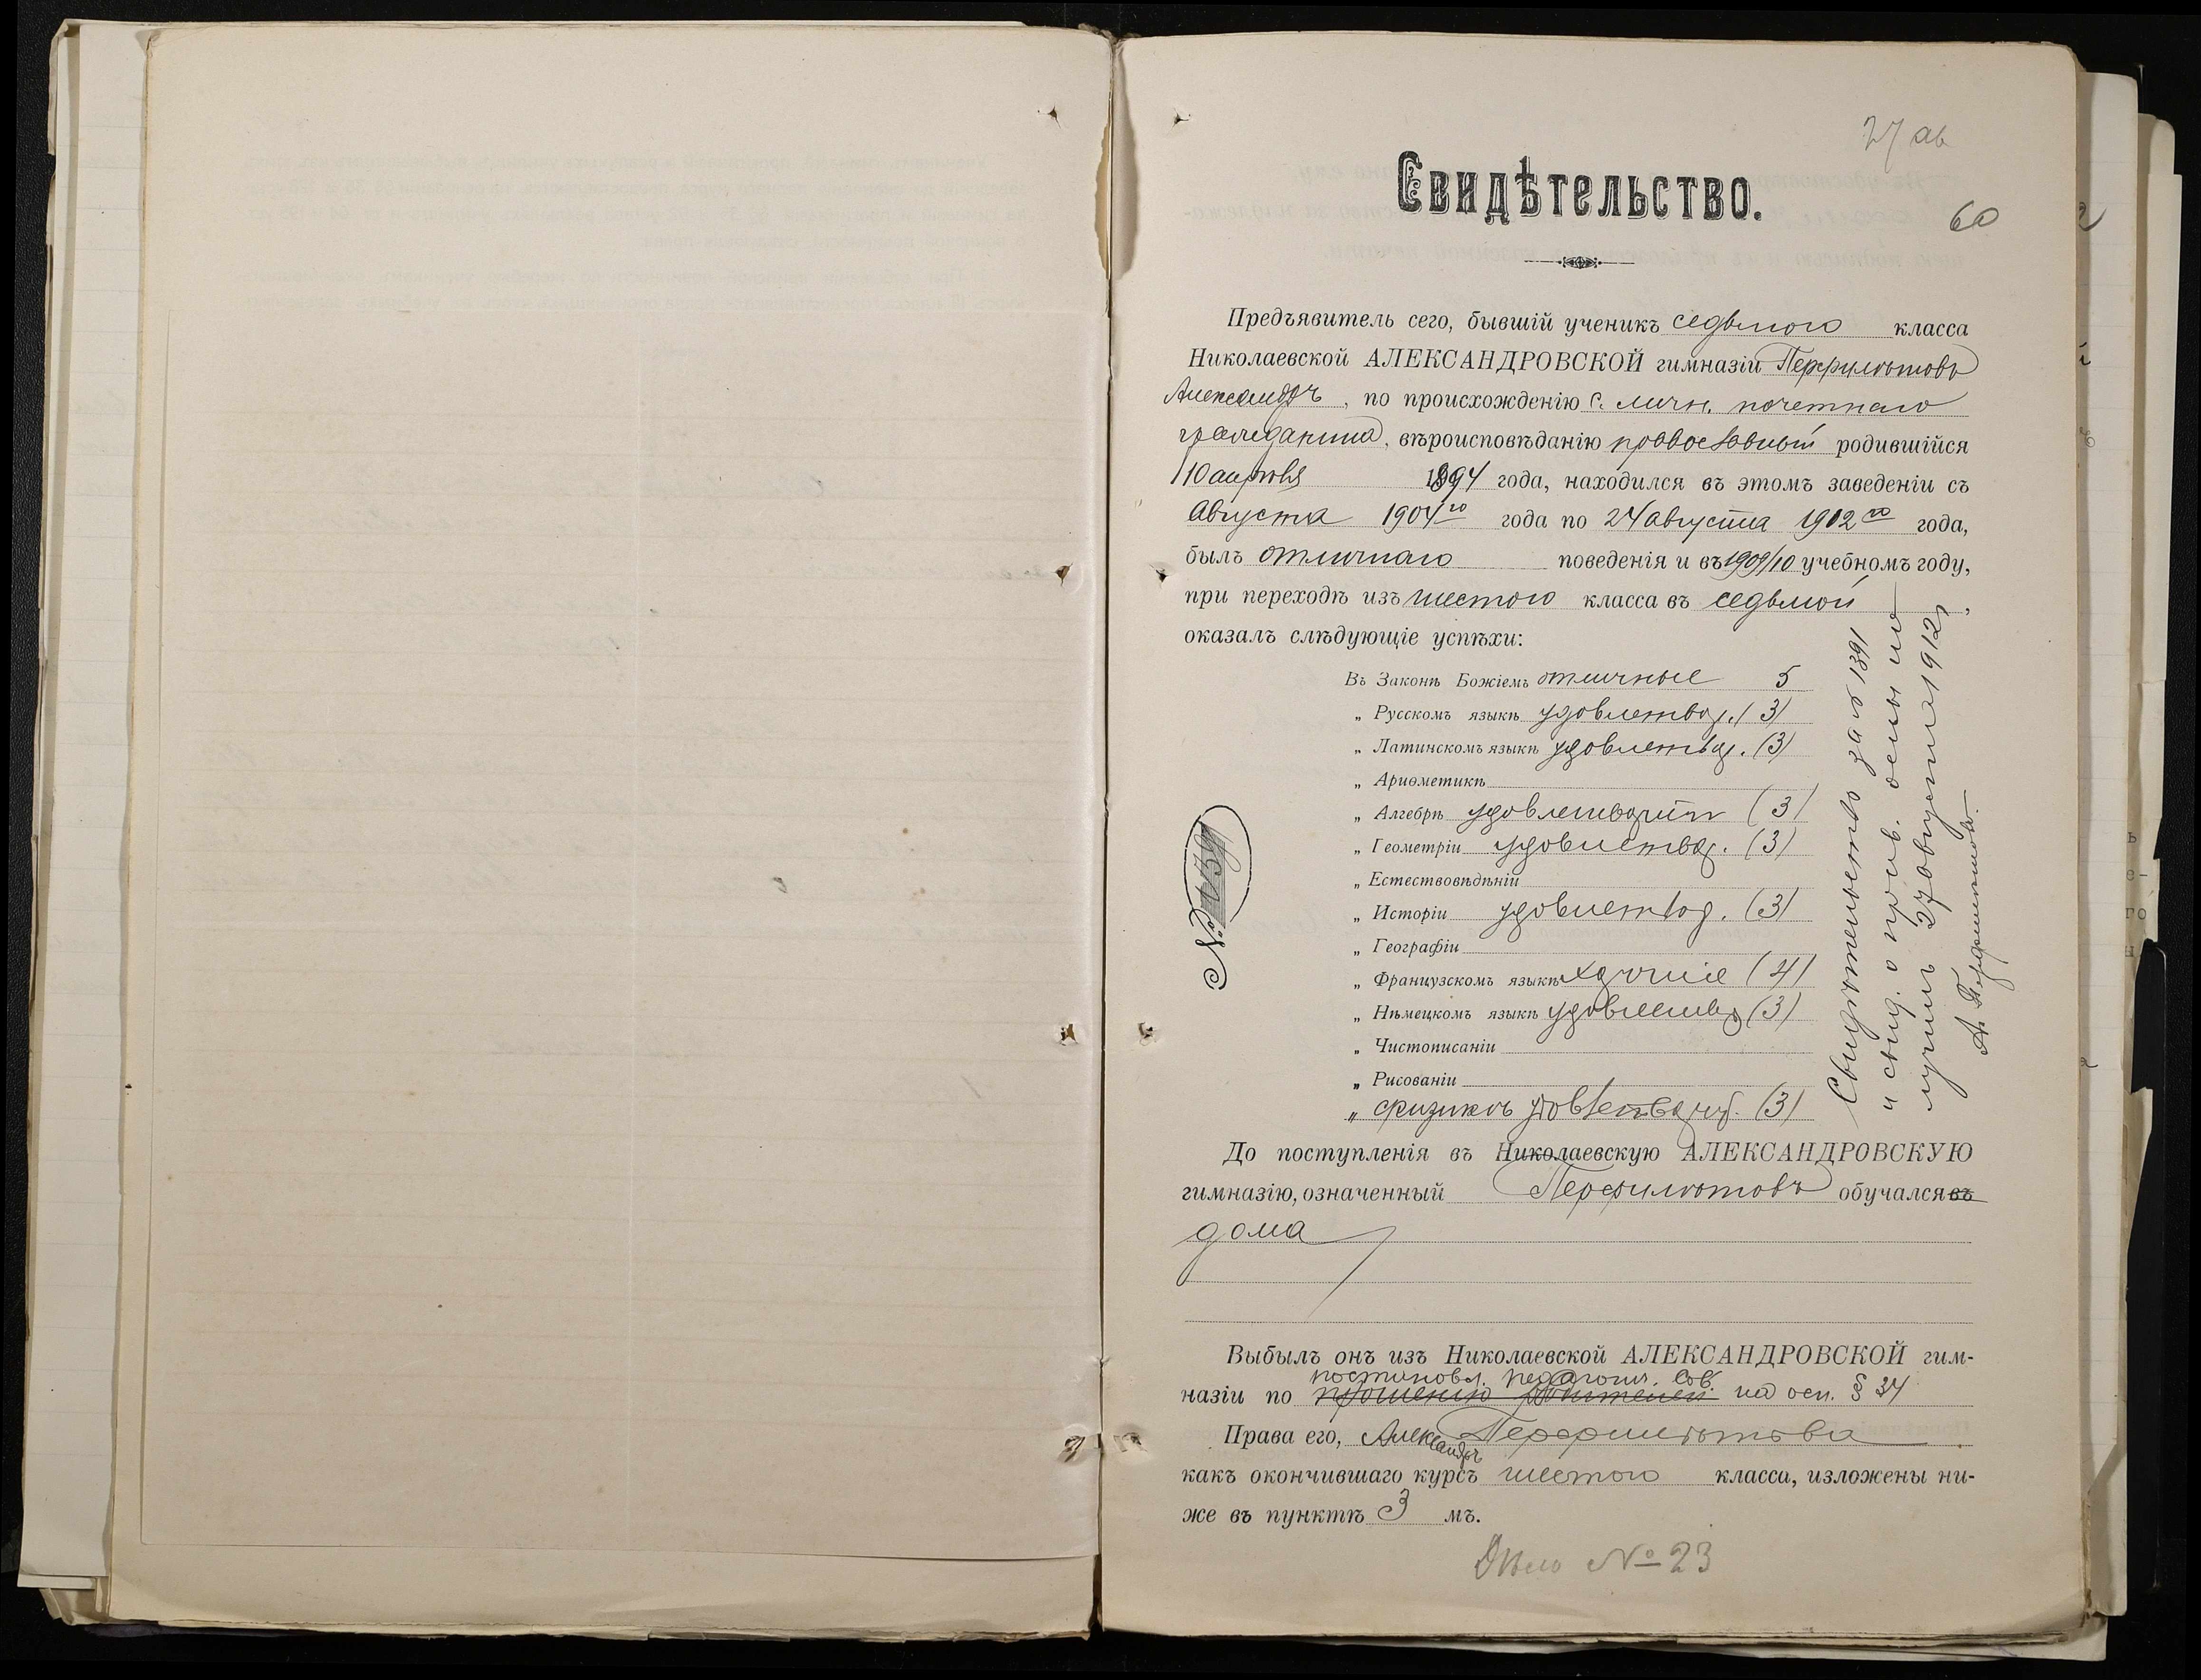 27 ав
Свидѣтельство.
60
Предъявитель сего, бывшій ученикъ седьмого класса
Николаевской АЛЕКСАНДРОВСКОЙ гимназіи Перфильевъ
Александръ, по происхожденію с. личн. почетнаго
гражданина, вѣроисповѣданію православный родившійся
10 апрѣля 1894 года, находился въ этомъ заведеніи съ
Августа 1904го года по 24 августа 1912го года,
былъ отличнаго поведенія и въ 1909/10 учебномъ году,
при переходѣ изъ шестого класса въ седьмой,
оказалъ слѣдующіе успѣхи:
Въ Законѣ Божіемъ отличные 5
„ Русскомъ языкѣ удовлетвор. (3)
„ Латинскомъ языкѣ удовлетвор. (3)
„ Ариѳметикѣ
„ Алгебрѣ удовлетворит (3)
„ Геометріи удовлетвор. (3)
„ Естествовѣдѣніи
„ Исторіи удовлетвор. (3)
„ Географіи
„ Французскомъ языкѣ хорошіе (4)
„ Нѣмецкомъ языкѣ удовлетвор (3)
„ Чистописаніи
„ Рисованіи
„ физикѣ удовлетворит. (3)
№ 1139
Свидѣтельство за № 1391
и свид. о прив. оспы по
лучилъ 27 августа 1912 г
До поступленія въ Николаевскую АЛЕКСАНДРОВСКУЮ
гимназію, означенный обучался въ
дома
Выбылъ онъ изъ Николаевской АЛЕКСАНДРОВСКОЙ гим-
постановл. педагогич. Сов.
назіи по прошенію родителей на осн. § 34
Права его, Александръ
какъ окончившаго курсъ шестого класса, изложены ни-
же въ пунктѣ 3 мъ.
Дѣло № 23